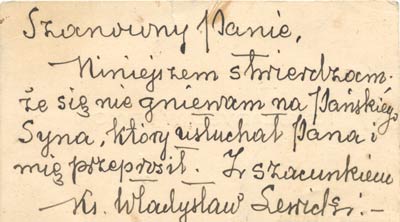 Szanowny Panie,
Niniejszem stwierdzam
że się nie gniewam na Pańskiego
Syna, który usłuchał Pana i
mię przeprosił. Z szacunkiem
Ks. Władysław Lewicki. –